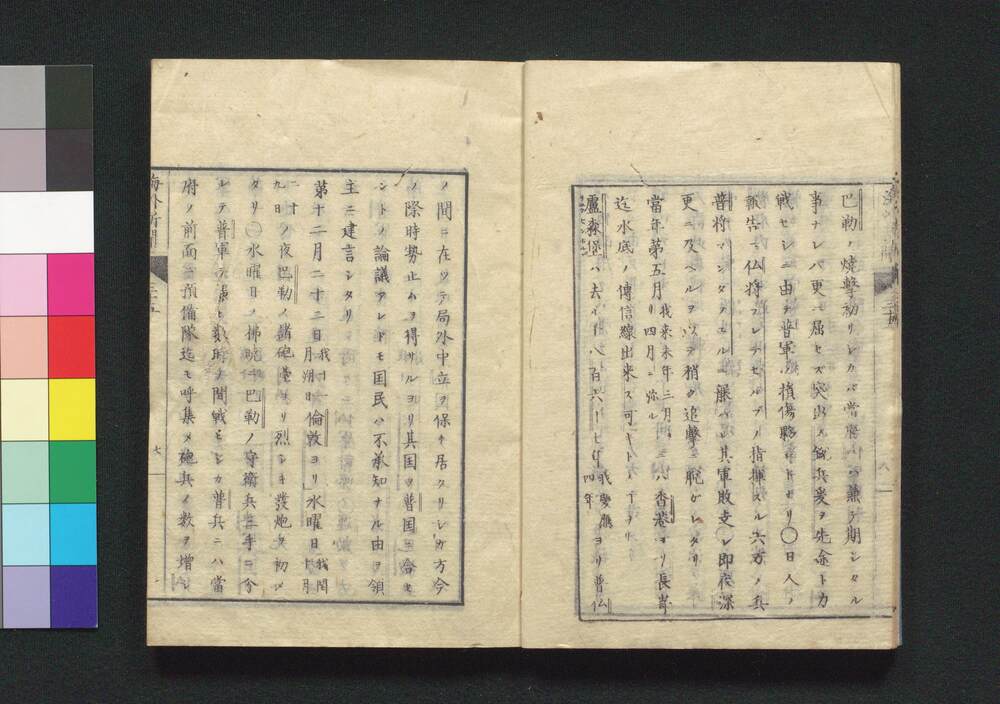 巴勒ノ焼撃初リシカバ當府ハ兼テ期シタル
事ナレバ更ニ屈セズ突出メ銃兵爰ヲ先途ト力
戦セシニ由テ普軍ノ損傷夥シトセリ〇日人ノ
報告ニ仏将フレデセルブノ指揮スル六万ノ兵
普将マンタ
其軍敗支ヘシ即夜深
更ニ及ベルヲ以テ稍ク追撃ヲ脱ガレタリ
當年第五月我来未年三月
ヨリ四月ニ弥ル
香港ヨリ長崎
迄水底ノ傳信線出来ス可キトイヘリ
盧森堡
ハ去ル千八百六十七年我慶應
ヨリ普仏
ノ間ニ在ツテ局外中立ヲ保チ居タリシガ方今
ノ際時勢止ムヲ得サルヨリ其国ヲ普国ニ合セ
ントノ論議アレドモ国民ハ不承知ナル由ヲ領
主ニ建言シタリ
第十二月二十二日我十一
月朔日倫敦ヨリ水曜日我閏
十月
二十
九日ノ夜巴勒ノ諸砲臺ヨリ烈シキ發炮ヲ初メ
タリ〇水曜日ノ拂暁ニ巴勒ノ守衛兵二手ニ分
レテ普軍ヲ襲ヒ数時ノ間戦ヒシカ普兵ニハ當
府ノ前面ニ預備隊迄モ呼集メ砲兵ノ数ヲ増シ
海外新聞